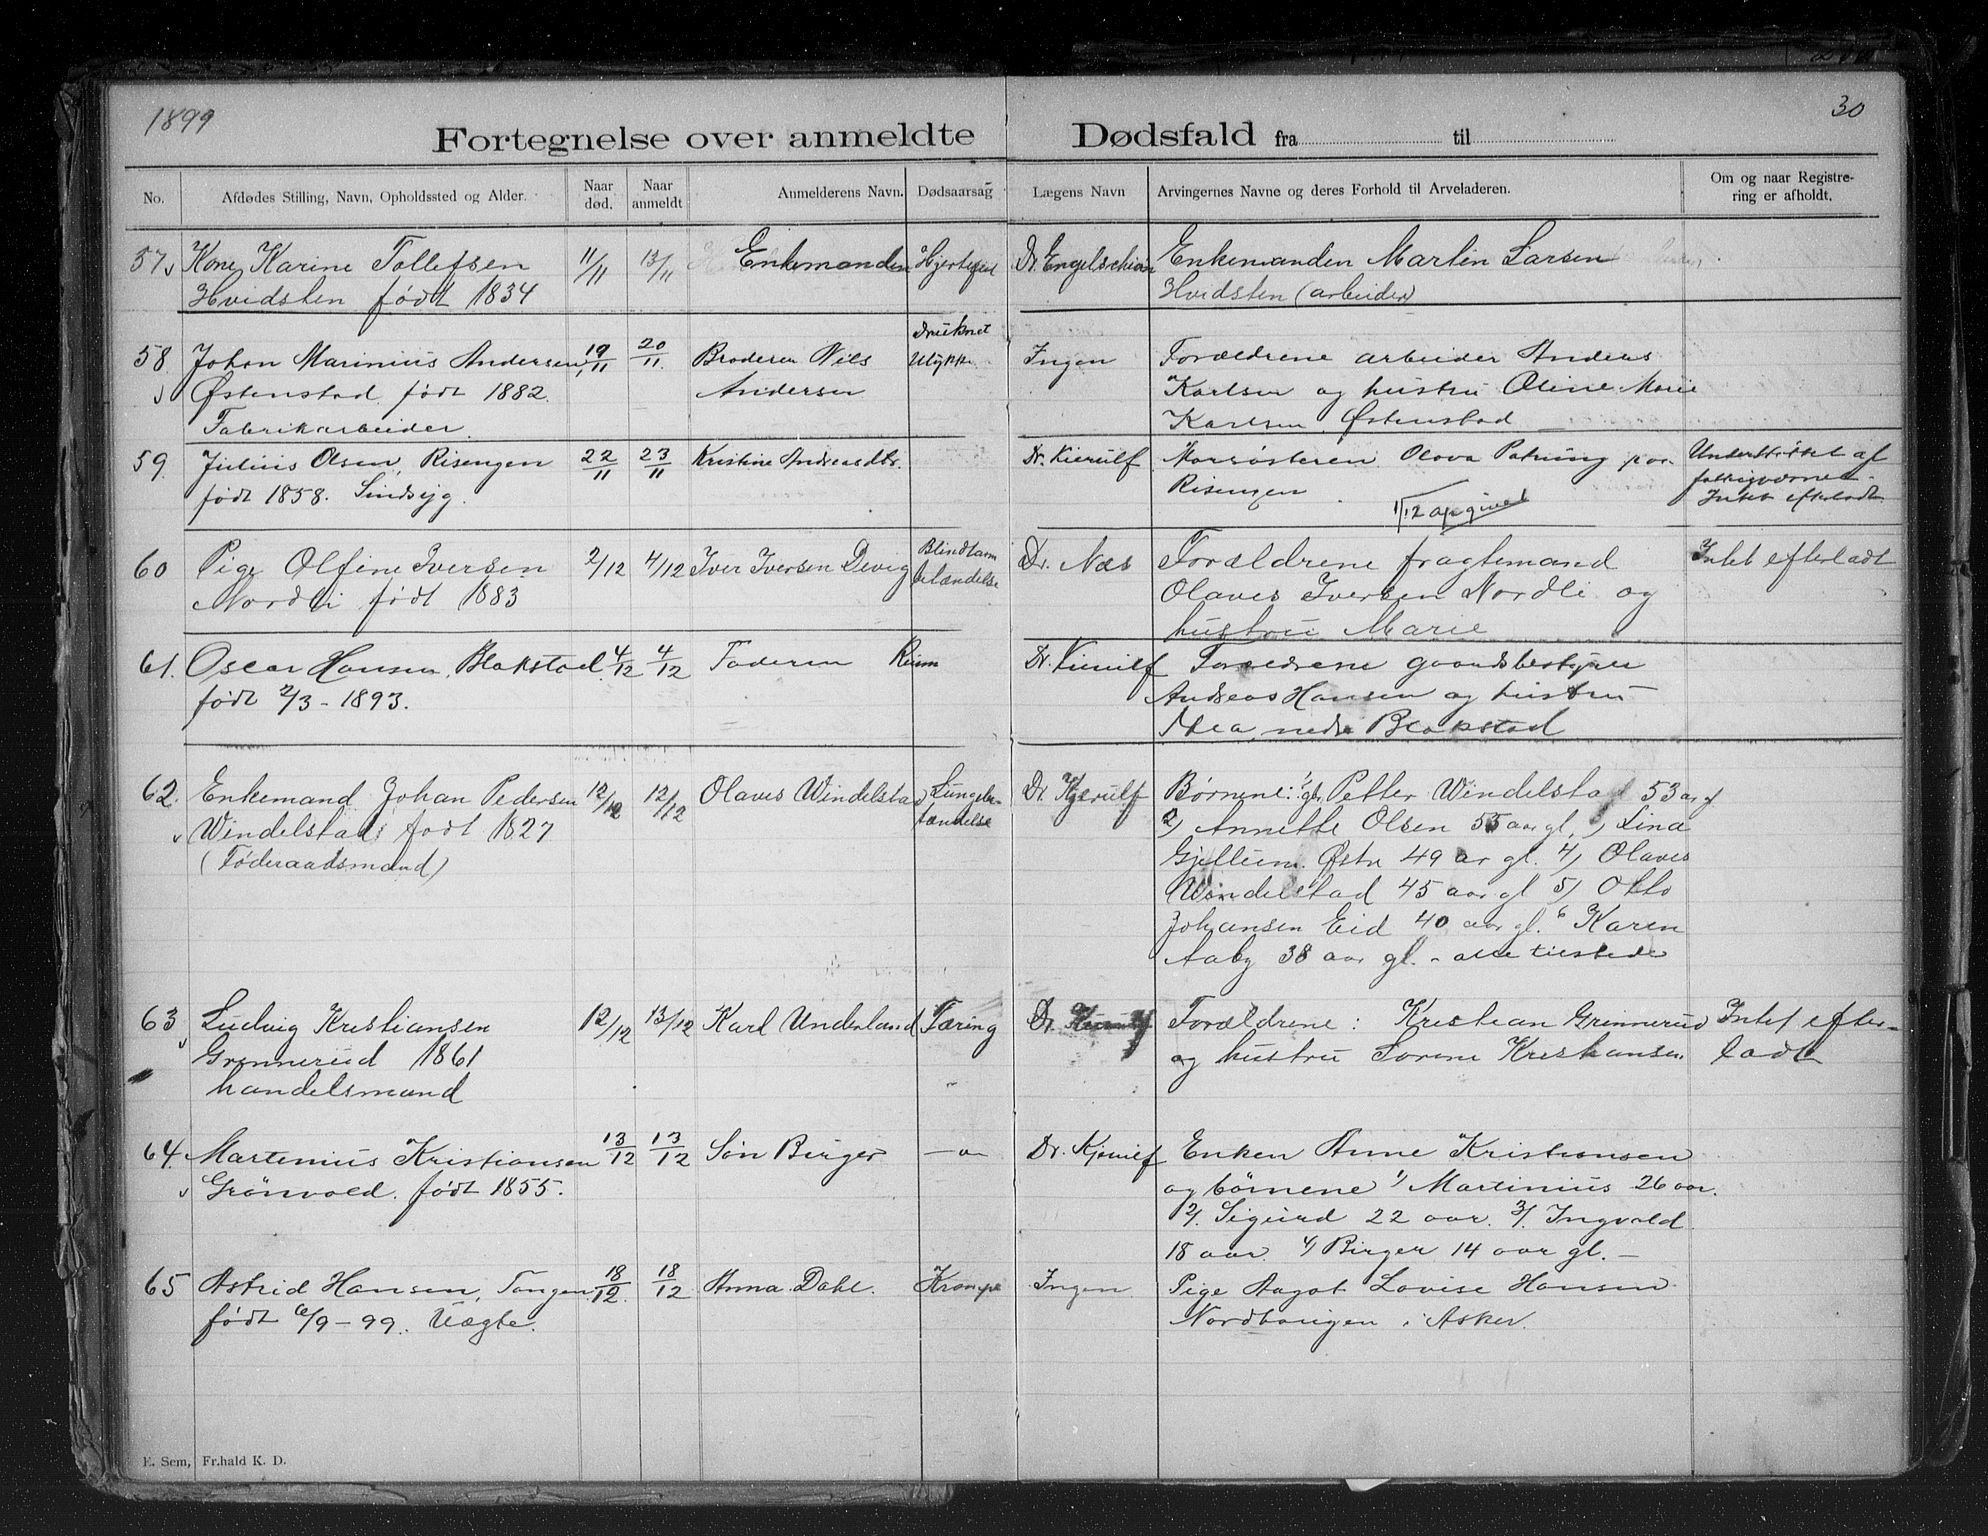 1899
30
Fortegnelse over anmeldte Dødsfald fra til
No. Afdødes Stilling, Navn, Opholdssted og Alder. Naar død. Naar anmeldt Anmelderens Navn. Dødsaarsag Lægens Navn Arvingernes Navne og deres Forhold til Arveladeren. Om og naar Registrering er afholdt.
57 Kone Karine Tollefsen 11/11 13/11 Enkemanden Hjertefeil Dr. Engelschiøn Enkemanden Martin Larsen
Hvidsten født 1834 Hvidsten (arbeider)
58 Johan Marinius Andersen 19/11 20/11 Broderen Nils Druknet Ulykke Ingen Forældrene arbeider Andreas
Østenstad født 1882 Andersen Karlsen og hustru Oline Marie
Fabrikarbeider. Karlsen Østenstad
59. Julius Olsen, Risengen 22/11 23/11 Kristine Andreasdtr. Dr. Kierulf Morsøsteren Olava
født 1858. Sindsyg. Risengen Understøttet af fattigvæsenet. Intet efterladt
1/12 opgivet
60 Pige Olfine Iversen 2/12 4/12 Iver Iversen Devig Blindtarm Dr. Næs Forældrene fragtemand Intet efterladt
Nordli født 1883 betændelse Olaves Iversen Nordli og
hustru Marie
61. Oscar Hansen, Blakstad 4/12 4/12 Faderen Dr. Kierulf Forældrene gaardsbestyrer
født 2/3 - 1893. Andreas Hansen og hustru
Thea, nedre Blakstad
62. Enkemand Johan Pedersen 12/12 12/12 Olaves Windelstad Lungebe- Dr. Kjerulf Børnene: 1/ Petter Windelstad 53 aar gl
Windelstad født 1827 tændelse 2/ Annette Olsen 55 aar gl, 3/ Lina
(Føderaadsmand) Gjellum Østre 49 ar gl. 4/ Olaves
Windelstad 45 aar gl 5/ Otto
Johansen Eid 40 aar gl. 6 Karen
Aaby 38 aar gl. - alle tilstede
63 Ludvig Kristiansen 12/12 13/12 Karl Underland Tæring Dr. Kierulf Forældrene: Kristian Grinnerud Intet efter-
Grinnerud 1861 og hustru Sorene Kristiansen ladt
handelsmand
64. Martinius Kristiansen 13/12 13/12 Søn Birger - " - Dr. Kjerulf Enken Anne Kristiansen
Grønvold. født 1855. og børnene 1/ Martinius 26 aar.
2/. Sigurd 22 aar. 3/. Ingvald
18 aar 4/ Birger 14 aar gl. -
65 Astrid Hansen, Tangen 18/12. 18/12 Anna Dahl. Krampe Ingen Pige Aagot Lovise Hansen
født 6/9 - 99. Uægte. Nordhaugen i Asker.
E. Sem, Fr.hald K. D.